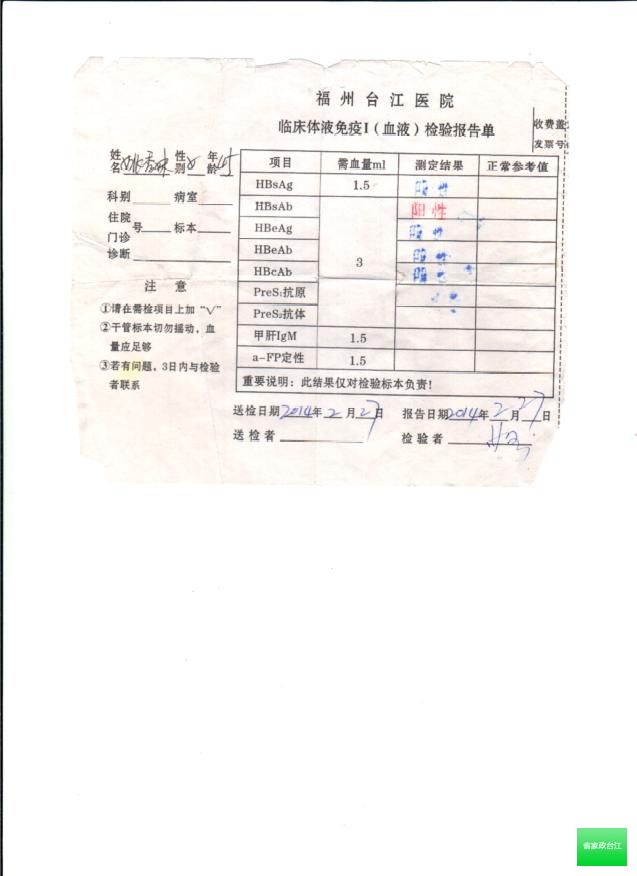 福州台江医院
临床体液免疫I（血液）检验报告单
收费盖
发票号
姓名 性别 女 年龄 45
科别 病室
住院
门诊 号 标本
诊断
注 意
①请在需检项目上加“√”
②干管标本切勿摇动，血
量应足够
③若有问题，3日内与检验
者联系
项目 需血量ml 测定结果 正常参考值
HBsAg 1.5 阴性
HBsAb 阳性
HBeAg 阴性
HBeAb 3 阴性
HBcAb 阴性
PreS₁抗原
PreS₂抗体
甲肝IgM 1.5
a-FP定性 1.5
重要说明：此结果仅对检验标本负责！
送检日期2014年2月27日 报告日期2014年2月27日
送检者 检验者
省家政台江